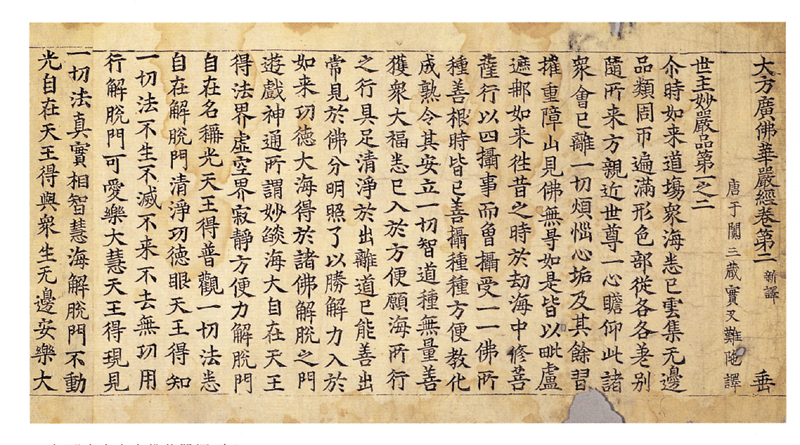 大方廣佛華嚴經卷第二 新譯 垂
唐于闐三藏實叉難陁譯
世主妙嚴品第一之二
尒時如来道場衆海悉已雲集无邊
品類周帀遍滿形色部從各各差别
隨所来方親近世尊一心瞻仰此諸
衆會已離一切煩惱心垢及其餘習
摧重障山見佛無㝵如是皆以毗盧
遮那如来徃昔之時於劫海中修菩
薩行以四攝事而曾攝受一一佛所
種善根時皆已善攝種種方便教化
成熟令其安立一切智道種無量善
獲衆大福悉已入於方便願海所行
之行具足清淨於出離道已能善出
常見於佛分明照了以勝解力入於
如来功德大海得於諸佛解脫之門
遊戲神通所謂妙焰海大自在天王
得法界虛空界寂靜方便力解脫門
自在名稱光天王得普觀一切法悉
自在解脫門清淨功德眼天王得知
一切法不生不滅不来不去無功用
行解脫門可愛樂大慧天王得現見
一切法真實相智慧海解脫門不動
光自在天王得與衆生无邊安樂大